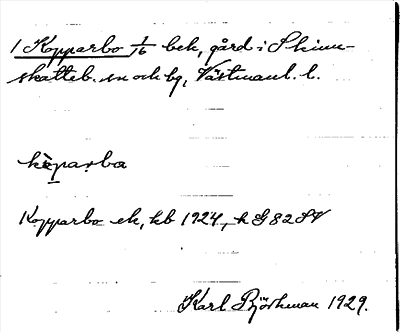 1 Kopparbo 1/16 bek, gård i Skinn-
skatteb. sn och bg, Västmanl. l.
kɔparba
Kopparbo ek, kb 1924, k G 82 SV
Karl Björkman 1929.